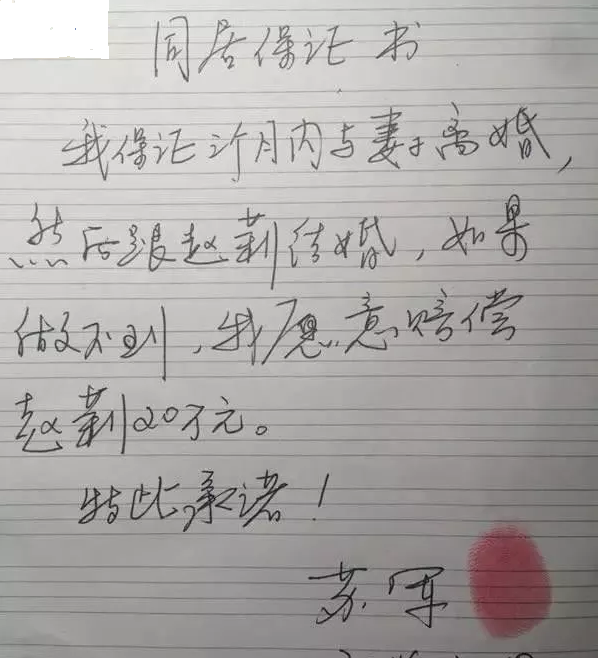 同居保证书
我保证3个月内与妻子离婚，
然后跟赵莉结婚，如果
做不到，我愿意赔偿
赵莉20万元。
特此承诺！
苏军